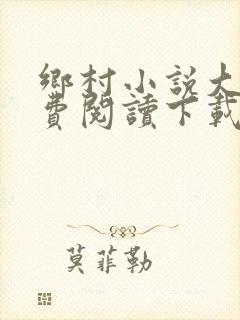 鄉村小説大
費閱讀下載
莫菲勒